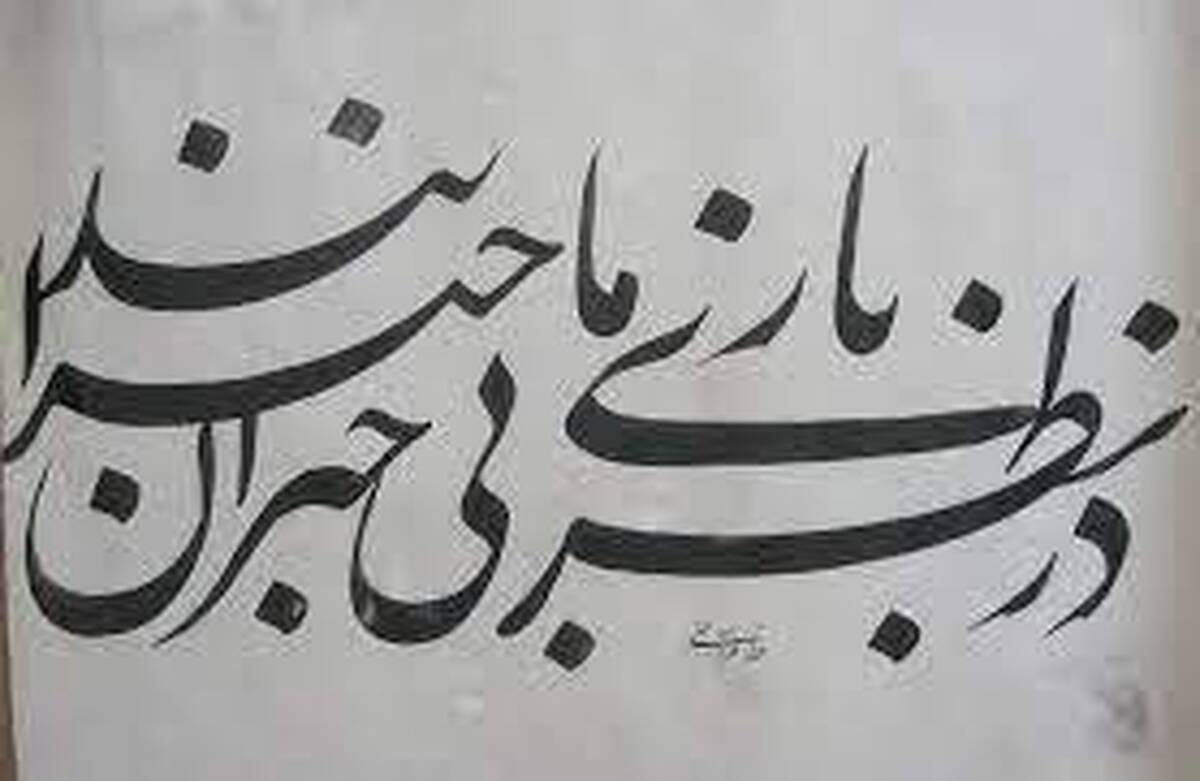 در نظر بازی ما بی خبران حیرانند